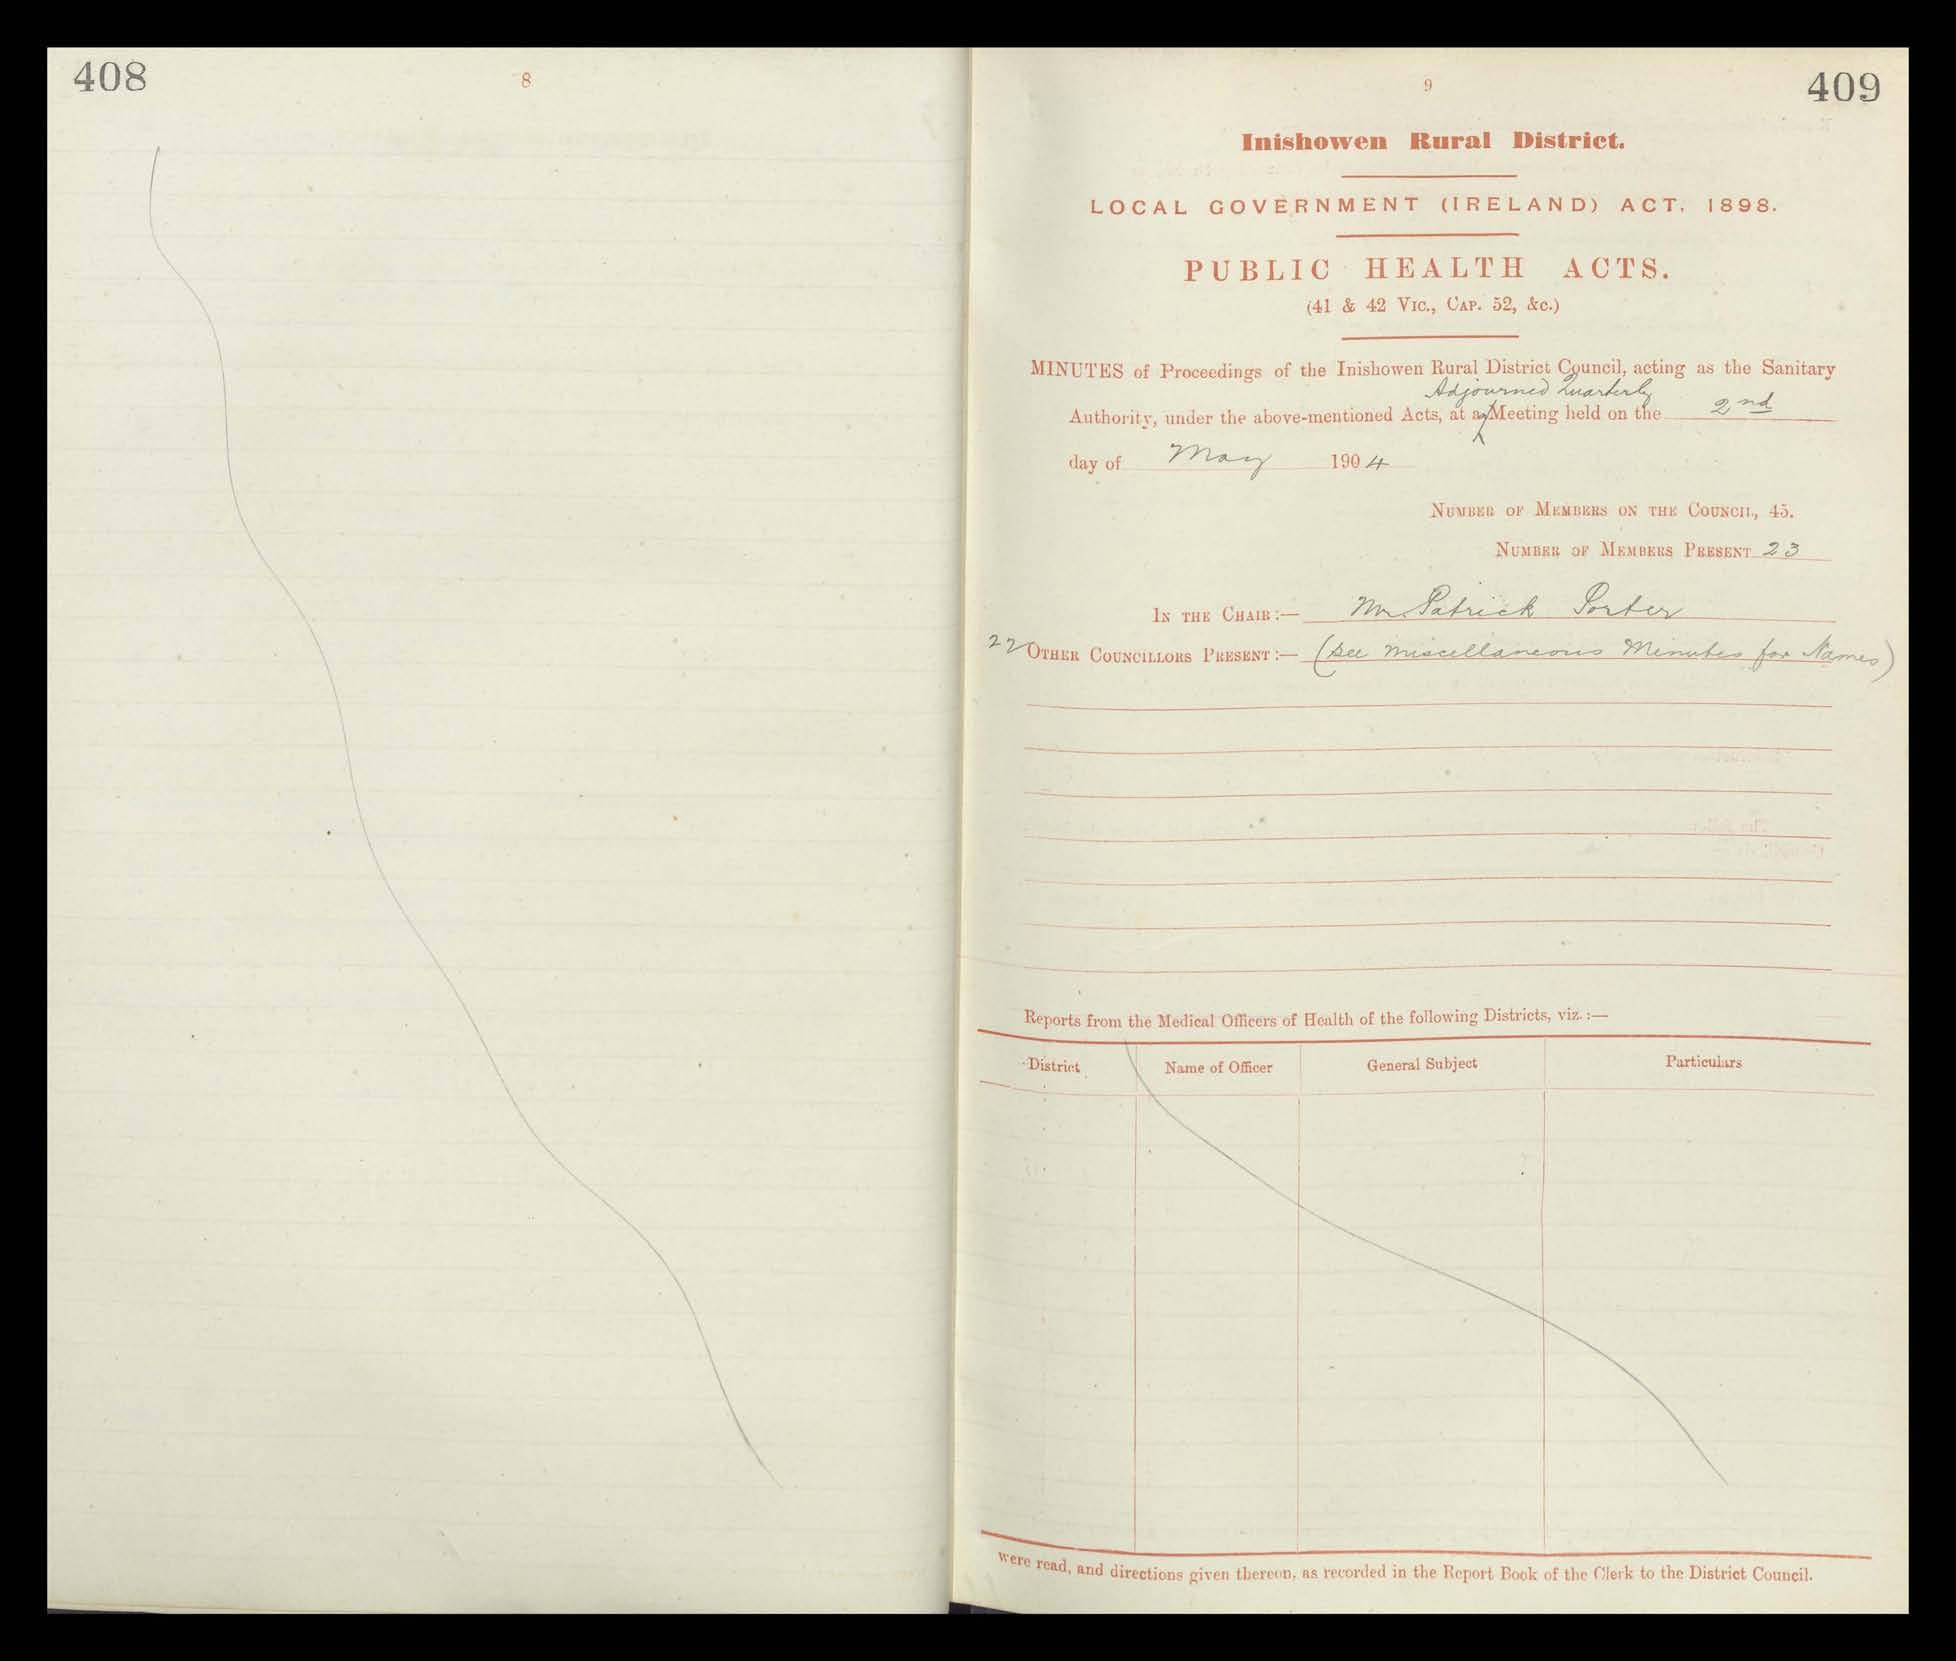 408
8
9
409
Inishowen Rural District.
LOCAL GOVERNMENT (IRELAND) ACT, 1898.
PUBLIC HEALTH ACTS.
(41 & 42 Vic., Cap. 52, &c.)
MINUTES of Proceedings of the Inishowen Rural District Council, acting as the Sanitary
Adjourned Quarterly
Authority, under the above-mentioned Acts, at a Meeting held on the 2nd
day of May 1904
Number of Members on the Council, 45.
Number of Members Present 23
In the Chair:— Mr. Patrick Porter
22 Other Councillors Present:— (See Miscellaneous Minutes for Names)
Reports from the Medical Officers of Health of the following Districts, viz.:—
District Name of Officer General Subject Particulars
were read, and directions given thereon, as recorded in the Report Book of the Clerk to the District Council.